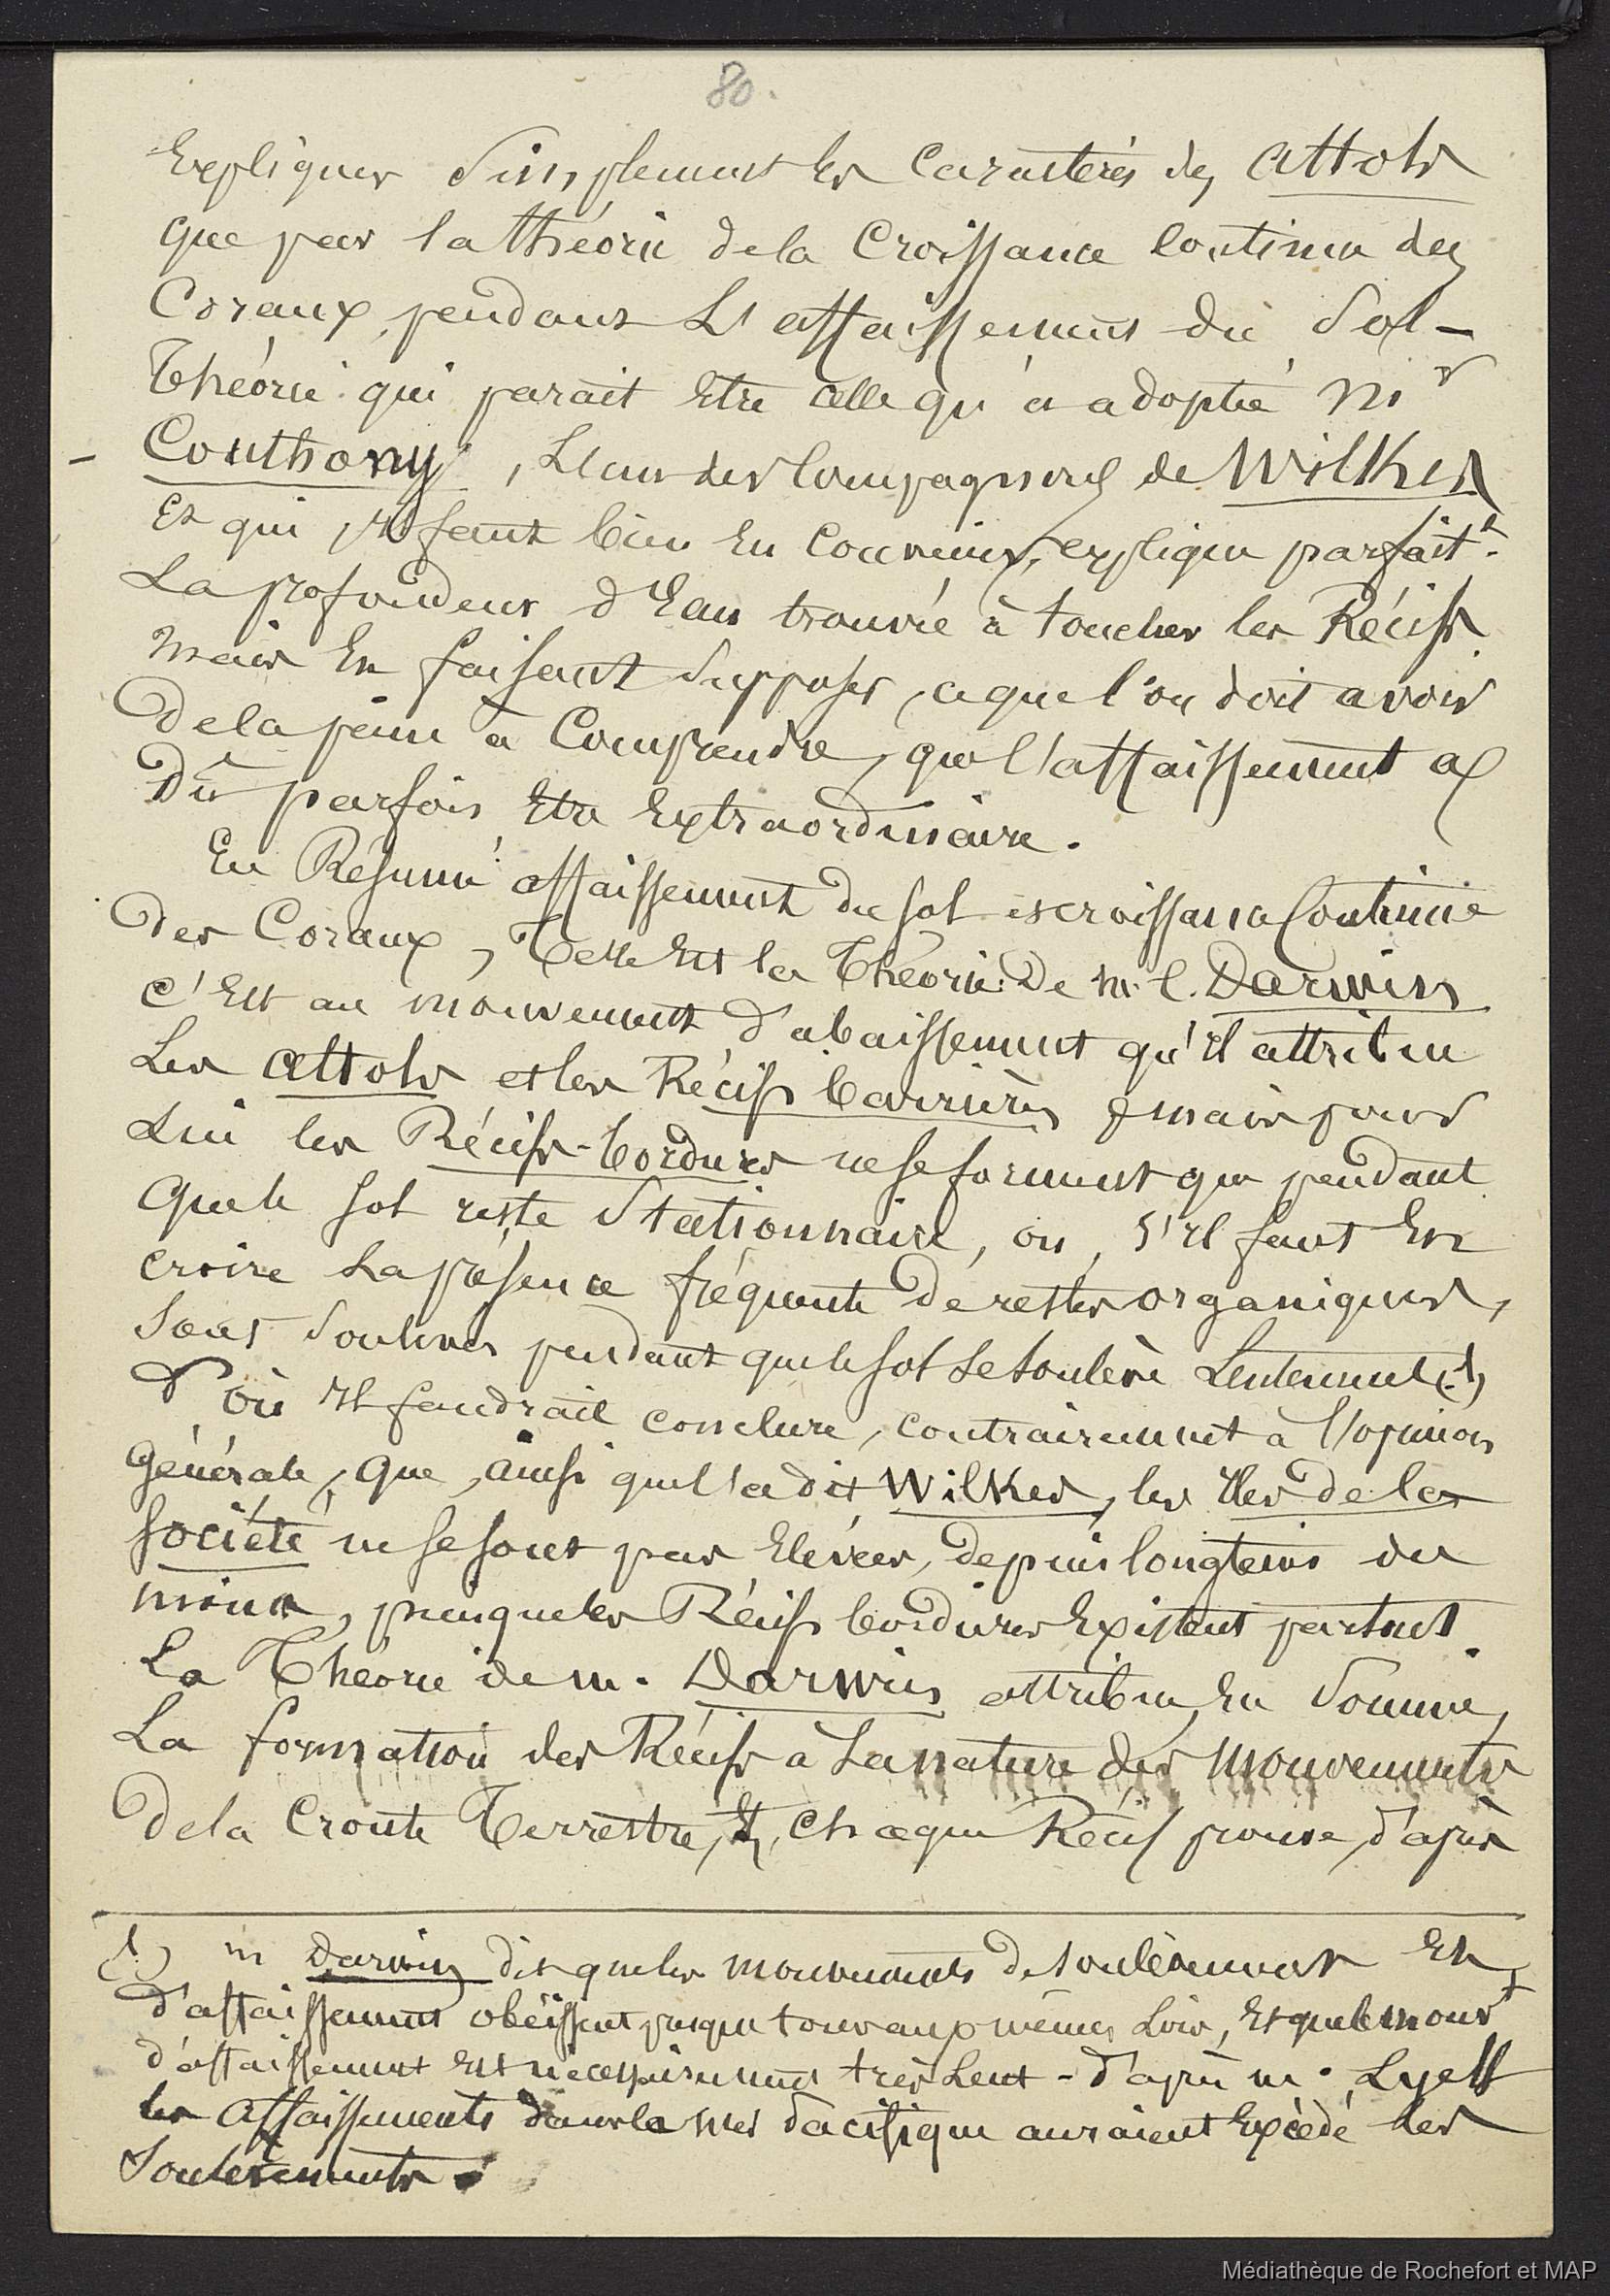 80.
Expliquer Simplement les Caractères des Attols
que par la théorie de la Croissance Continue des
Coraux, pendant L'affaissement du Sol -
Théorie qui parait Etre celle qu'a adoptée Mr
- Couthony, L'un des Compagnons de Wilkes
Et qui, Il faut bien En Convenir, explique parfaitt.
La profondeur d'Eau trouvée à toucher les Récifs
mais En faisant Supposer, ce que l'on doit avoir
de la peine à Comprendre, que l'affaissement a
Dû parfois Etre Extraordinaire.
En Résumé affaissement du sol et croissance Continue
des Coraux, Telle Est la Théorie De M. C. Darwin
C'Est au mouvement d'abaissement qu'il attribue
Les Attols et les Récifs barrières, mais pour
Lui les Récifs-bordures ne se forment que pendant
Que le sol reste Stationnaire, ou, s'il faut En
croire La présence fréquente de restes organiques,
Soulevés pendant que le sol se soulève Lentement (1)
D'où Il faudrait conclure, contrairement à l'opinion
Générale, Que, ainsi que l'a dit Wilkes, les Iles de la
Société ne se sont pas Elevées, depuis longtems du
moins, puisque les Récifs bordures Existent partout.
La Théorie de M. Darwin attribue, En Somme,
La formation des Récifs à La nature des mouvements
De la Croute Terrestre, Et, Chaque Récif prouve, d'après
(1) M Darwin dit que les mouvements de soulèvement Et
d'affaissement obéissent presque tous aux mêmes Lois, Et que le mouvt
d'affaissement Est nécessairement très Lent - d'après M. Lyell
les Affaissements dans la mer Pacifique auraient Excédé les
Soulèvements.
Médiathèque de Rochefort et MAP